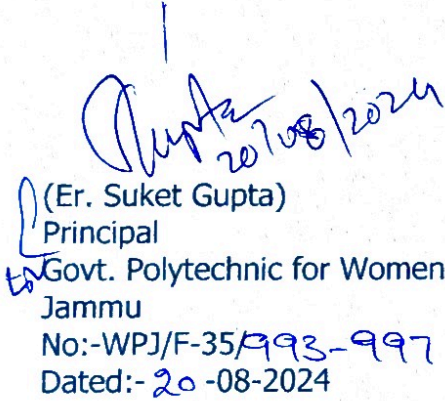 Gupta
20/08/2024
(Er. Suket Gupta)
Principal
for Govt. Polytechnic for Women
Jammu
No:-WPJ/F-35/993-997
Dated:- 20 -08-2024